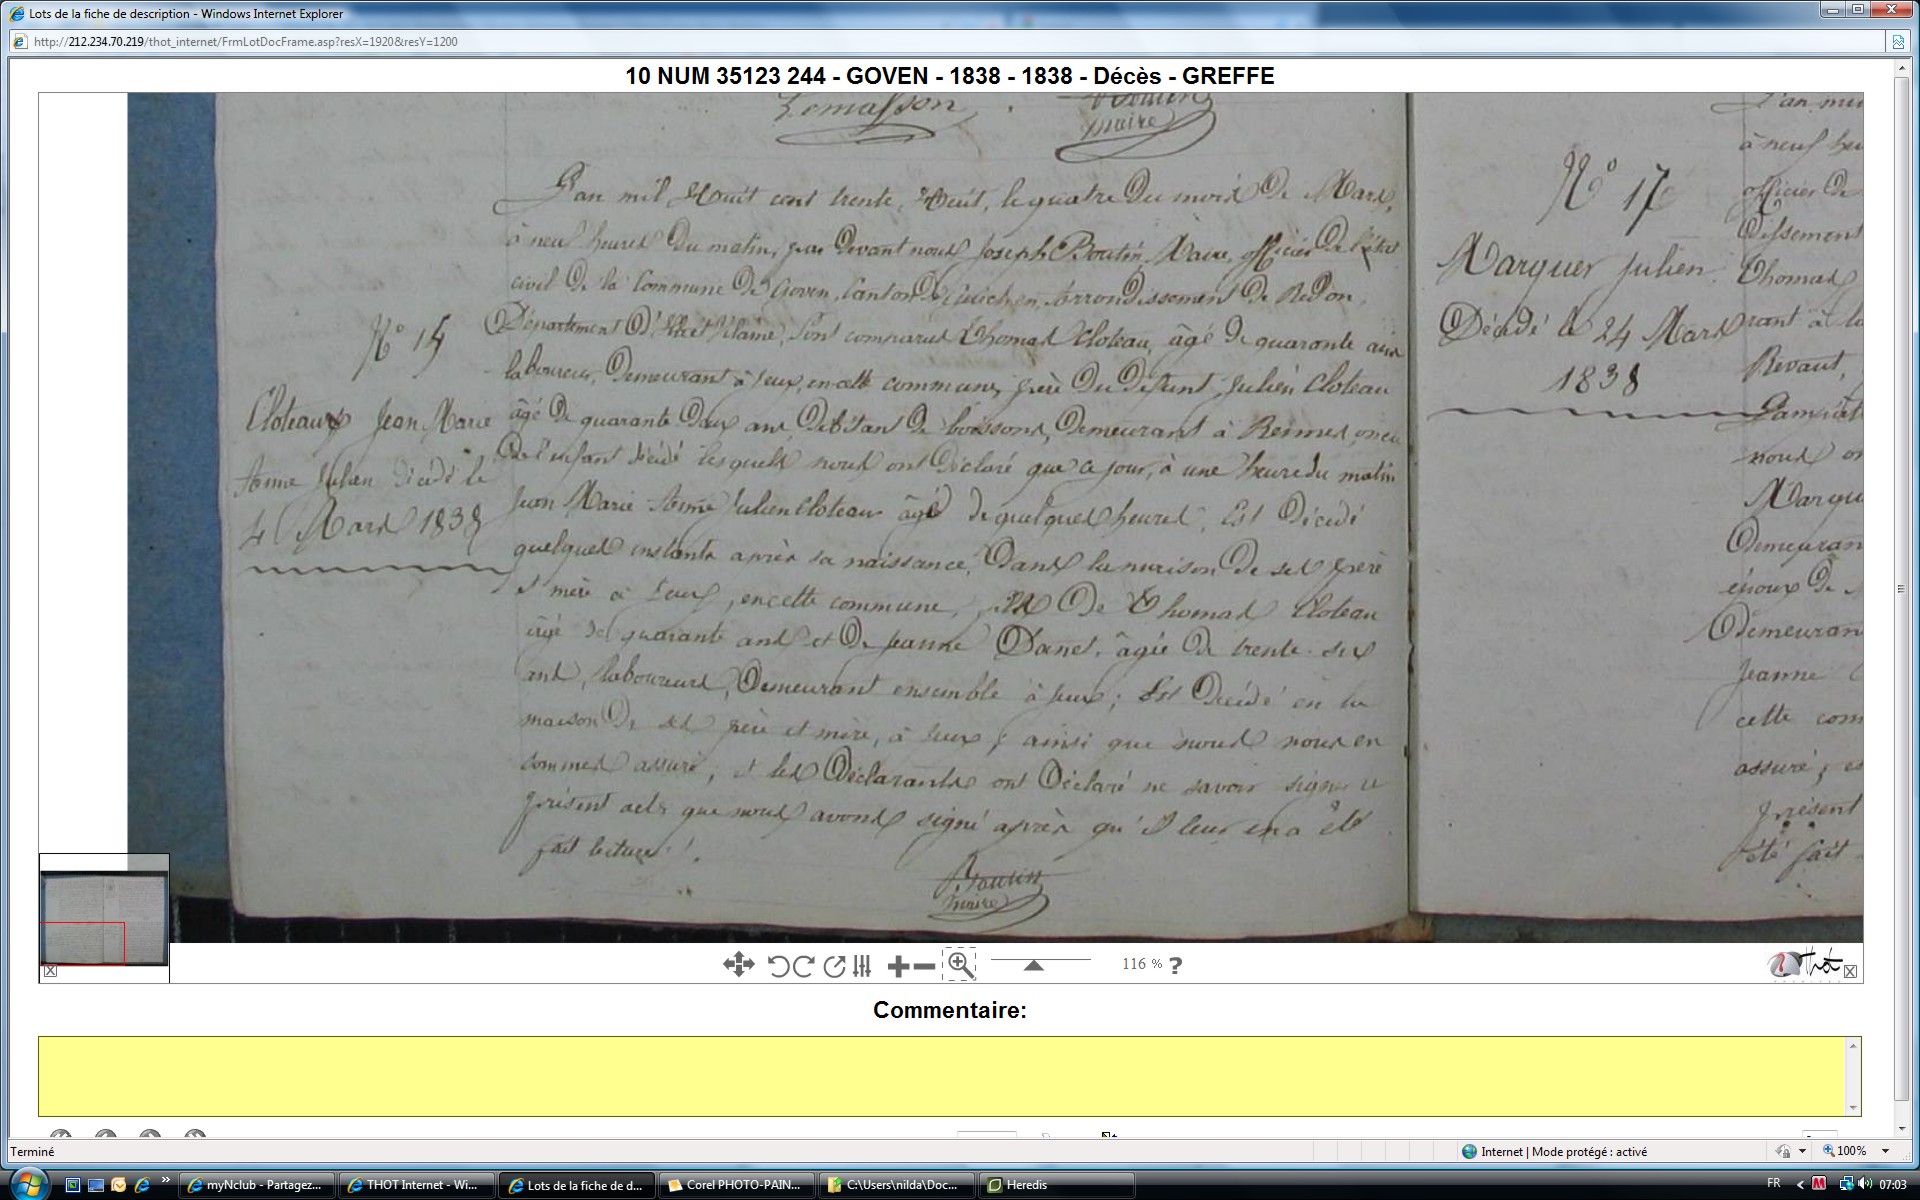 Lots de la fiche de description - Windows Internet Explorer
http://212.234.70.219/thot_internet/FrmLotDocFrame.asp?resX=1920&resY=1200
10 NUM 35123 244 - GOVEN - 1838 - 1838 - Décès - GREFFE
Lemasson
Boutin
maire
N° 15
Cloteaux Jean Marie
Aimé Julien décédé le
4 Mars 1838
L'an mil huit cent trente huit, le quatre du mois de Mars,
à neuf heures du matin, par devant nous Joseph Boutin, Maire, officier de l'état
civil de la Commune de Goven, Canton de Guichen, Arrondissement de Redon,
Département d'Ille et Vilaine, sont comparus Thomas Cloteau, âgé de quarante ans
laboureur, demeurant à , en cette commune, père du défunt, Julien Cloteau
âgé de quarante deux ans, débitant de boissons, demeurant à Rennes, oncle
de l'enfant décédé lesquels nous ont déclaré que ce jour, à une heure du matin
Jean Marie Aimé Julien Cloteau âgé de quelques heures, Est décédé
quelques instants après sa naissance, dans la maison de ses père
et mère à , en cette commune, fils de Thomas Cloteau
âgé de quarante ans et de Jeanne Danet, âgée de trente six
ans, laboureurs, demeurant ensemble à ; Est décédé en la
maison de ses père et mère, à ; ainsi que nous nous en
sommes assuré, et les déclarants ont déclaré ne savoir signer le
présent acte que nous avons signé après qu'il leur en a été
fait lecture.
Boutin
maire
N° 17
Marquer Julien
Décédé le 24 Mars
1838
L'an mil
à neuf heu
officier de
dissement
Thomas
rant à la
Revaut,
nous on
Marqu
Demeuran
époux de
Demeuran
Jeanne
cette com
assuré, es
présent
été fait
116 % ?
Thot
Commentaire:
Terminé
Internet | Mode protégé : activé
100%
myNclub - Partagez...
THOT Internet - Wi...
Lots de la fiche de d...
Corel PHOTO-PAIN...
C:\Users\nilda\Doc...
Heredis
FR
07:03